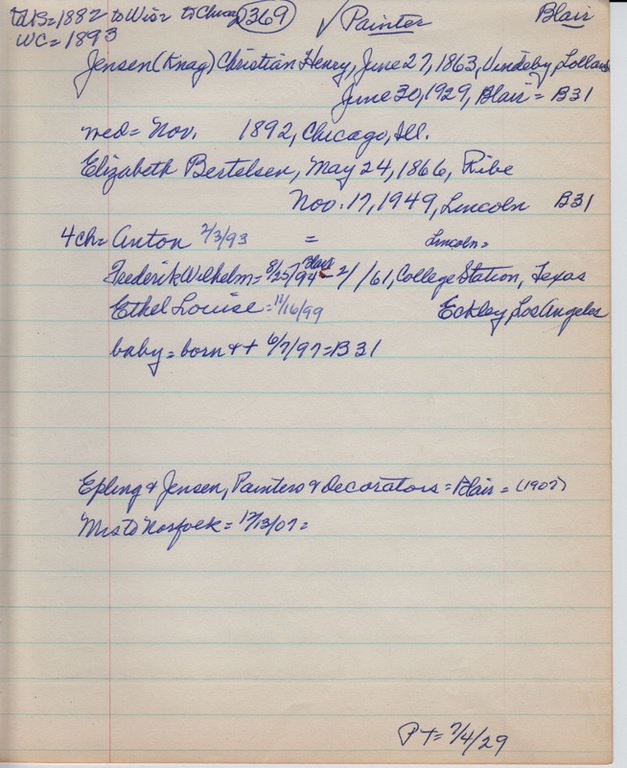 to US=1882 to Wis= to Chicago 369 ✓ Painter Blair
WC=1893
Jensen (Knag) Christian Henry, June 27, 1863, Vindeby, Lolland
June 30, 1929, Blair = B31
med= Nov. 1892, Chicago, Ill.
Elizabeth Bertelsen, May 24, 1866, Ribe
Nov. 17, 1949, Lincoln B31
4 ch= Anton 2/3/93 = Lincoln=
Frederik Wilhelm= 8/25/94 Blair = 2/ /61, College Station, Texas
Ethel Louise= 11/16/99 Eckley, Los Angeles
baby= born & + 6/7/97=B31
Epling & Jensen, Painters & Decorators = Blair = (1907)
Ms to Norfolk = 12/13/07=
P += 7/4/29